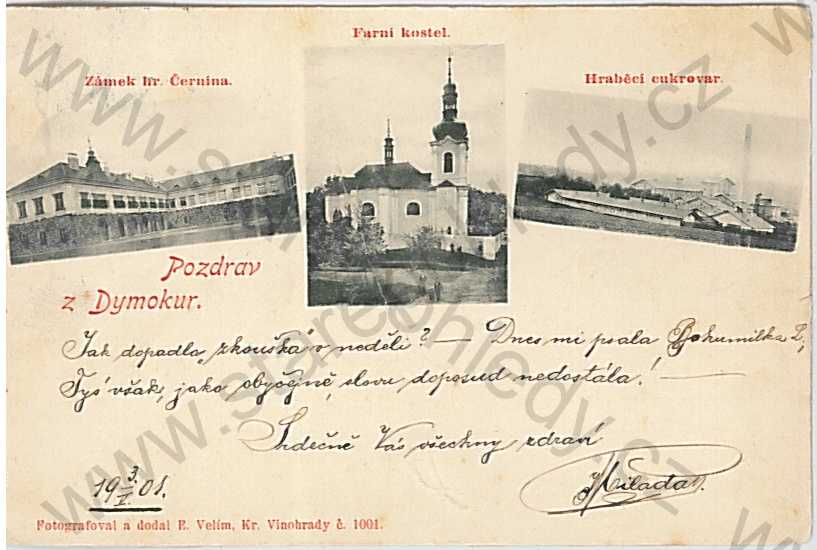 Farní kostel.
Zámek hr. Černína.
Hraběcí cukrovar.
Pozdrav
z Dymokur.
Jak dopadla "zkouška" v neděli? — Dnes mi psala Bohumilka Z,
Tys' však, jako obyčejně, slovu doposud nedostála! —
Srdečně Vás všechny zdraví
Milada.
19 3/V. 01.
Fotografoval a dodal E. Velím, Kr. Vinohrady č. 1001.
www.starepohledy.cz